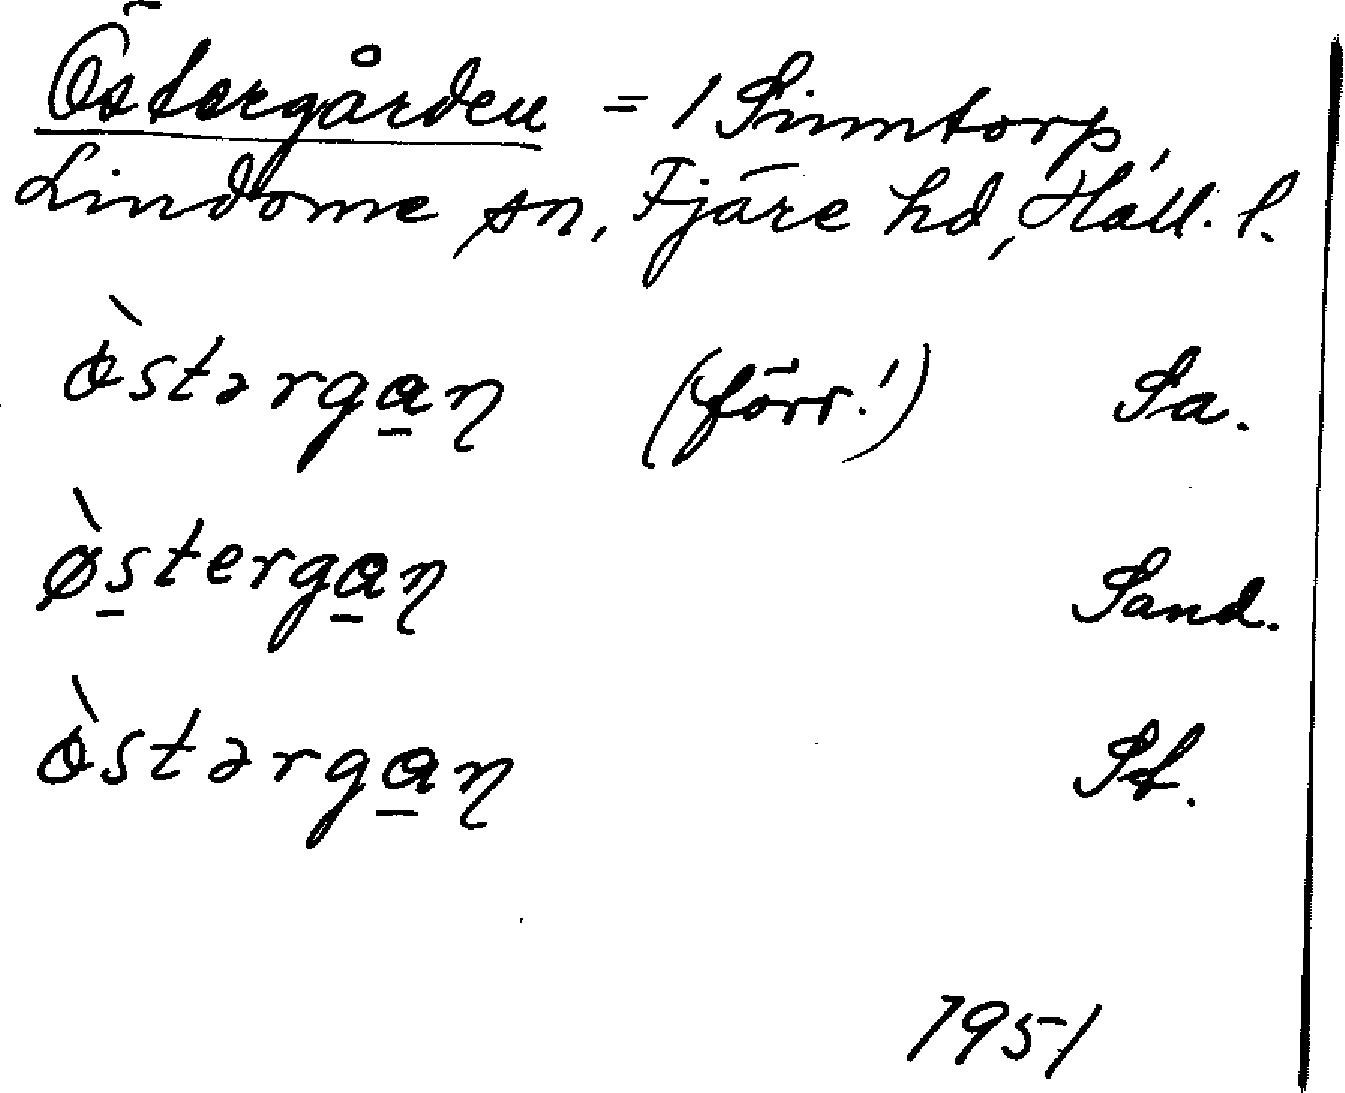 Östergården = 1 Sinntorp,
Lindome sn, Fjäre hd, Hall. l.
ö̀stərga̲ŋ (förr!) Sa.
ø̀s̲terga̲ŋ Sand.
ö̀stərga̲ŋ Sf.
1951